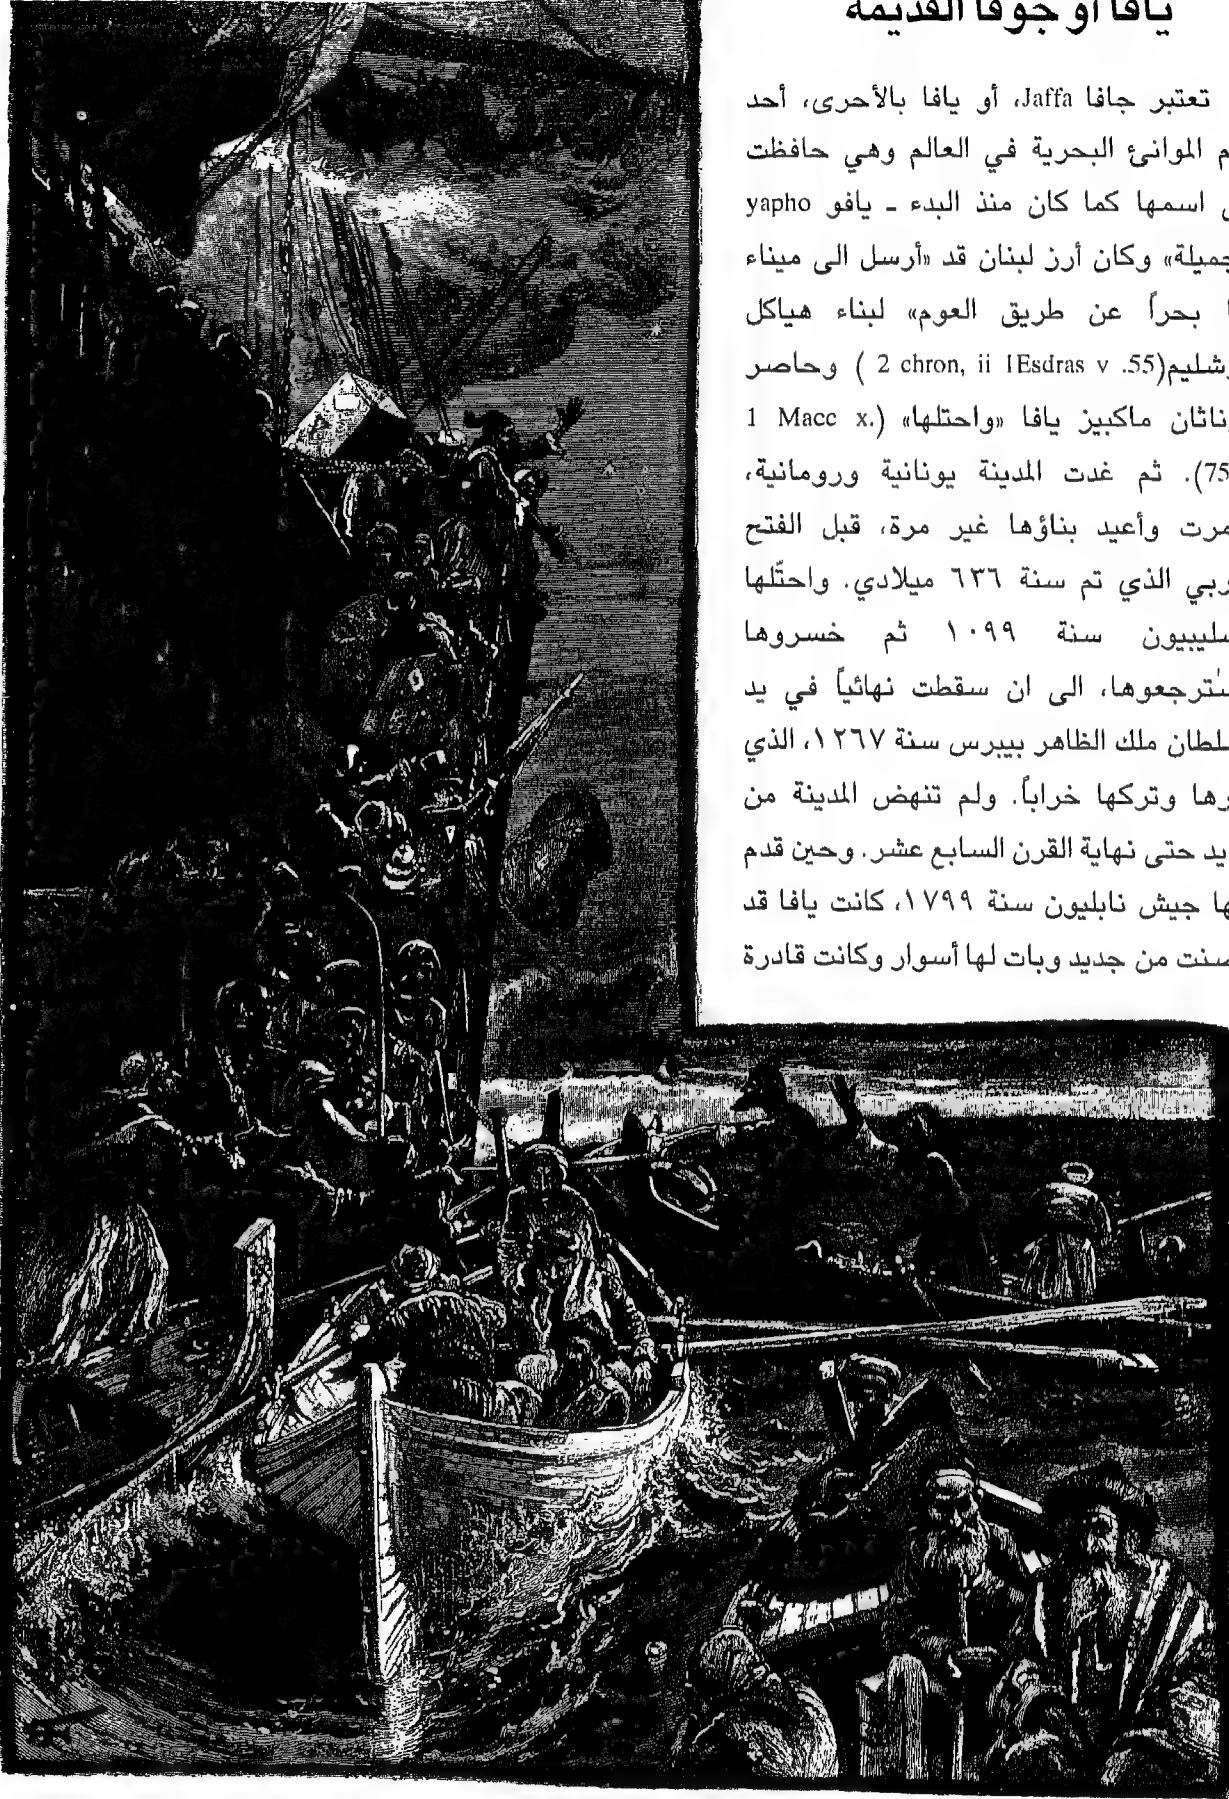 يافا أو جوفا القديمة
تعتبر جافا Jaffa، أو يافا بالأحرى، أحد
م الموانئ البحرية في العالم وهي حافظت
اسمها كما كان منذ البدء ـ يافو yapho
جميلة» وكان أرز لبنان قد «أرسل الى ميناء
بحراً عن طريق العوم» لبناء هياكل
رشليم(2 chron, ii 1Esdras v .55 ) وحاصر
ناثان ماكبيز يافا «واحتلها» (.1 Macc x
75). ثم غدت المدينة يونانية ورومانية،
مرت وأعيد بناؤها غير مرة، قبل الفتح
ربي الذي تم سنة ٦٣٦ ميلادي. واحتّلها
سليبيون سنة ١٠٩٩ ثم خسروها
سترجعوها، الى ان سقطت نهائياً في يد
لطان ملك الظاهر بيبرس سنة ١٢٦٧، الذي
رها وتركها خراباً. ولم تنهض المدينة من
يد حتى نهاية القرن السابع عشر. وحين قدم
ها جيش نابليون سنة ١٧٩٩، كانت يافا قد
صنت من جديد وبات لها أسوار وكانت قادرة